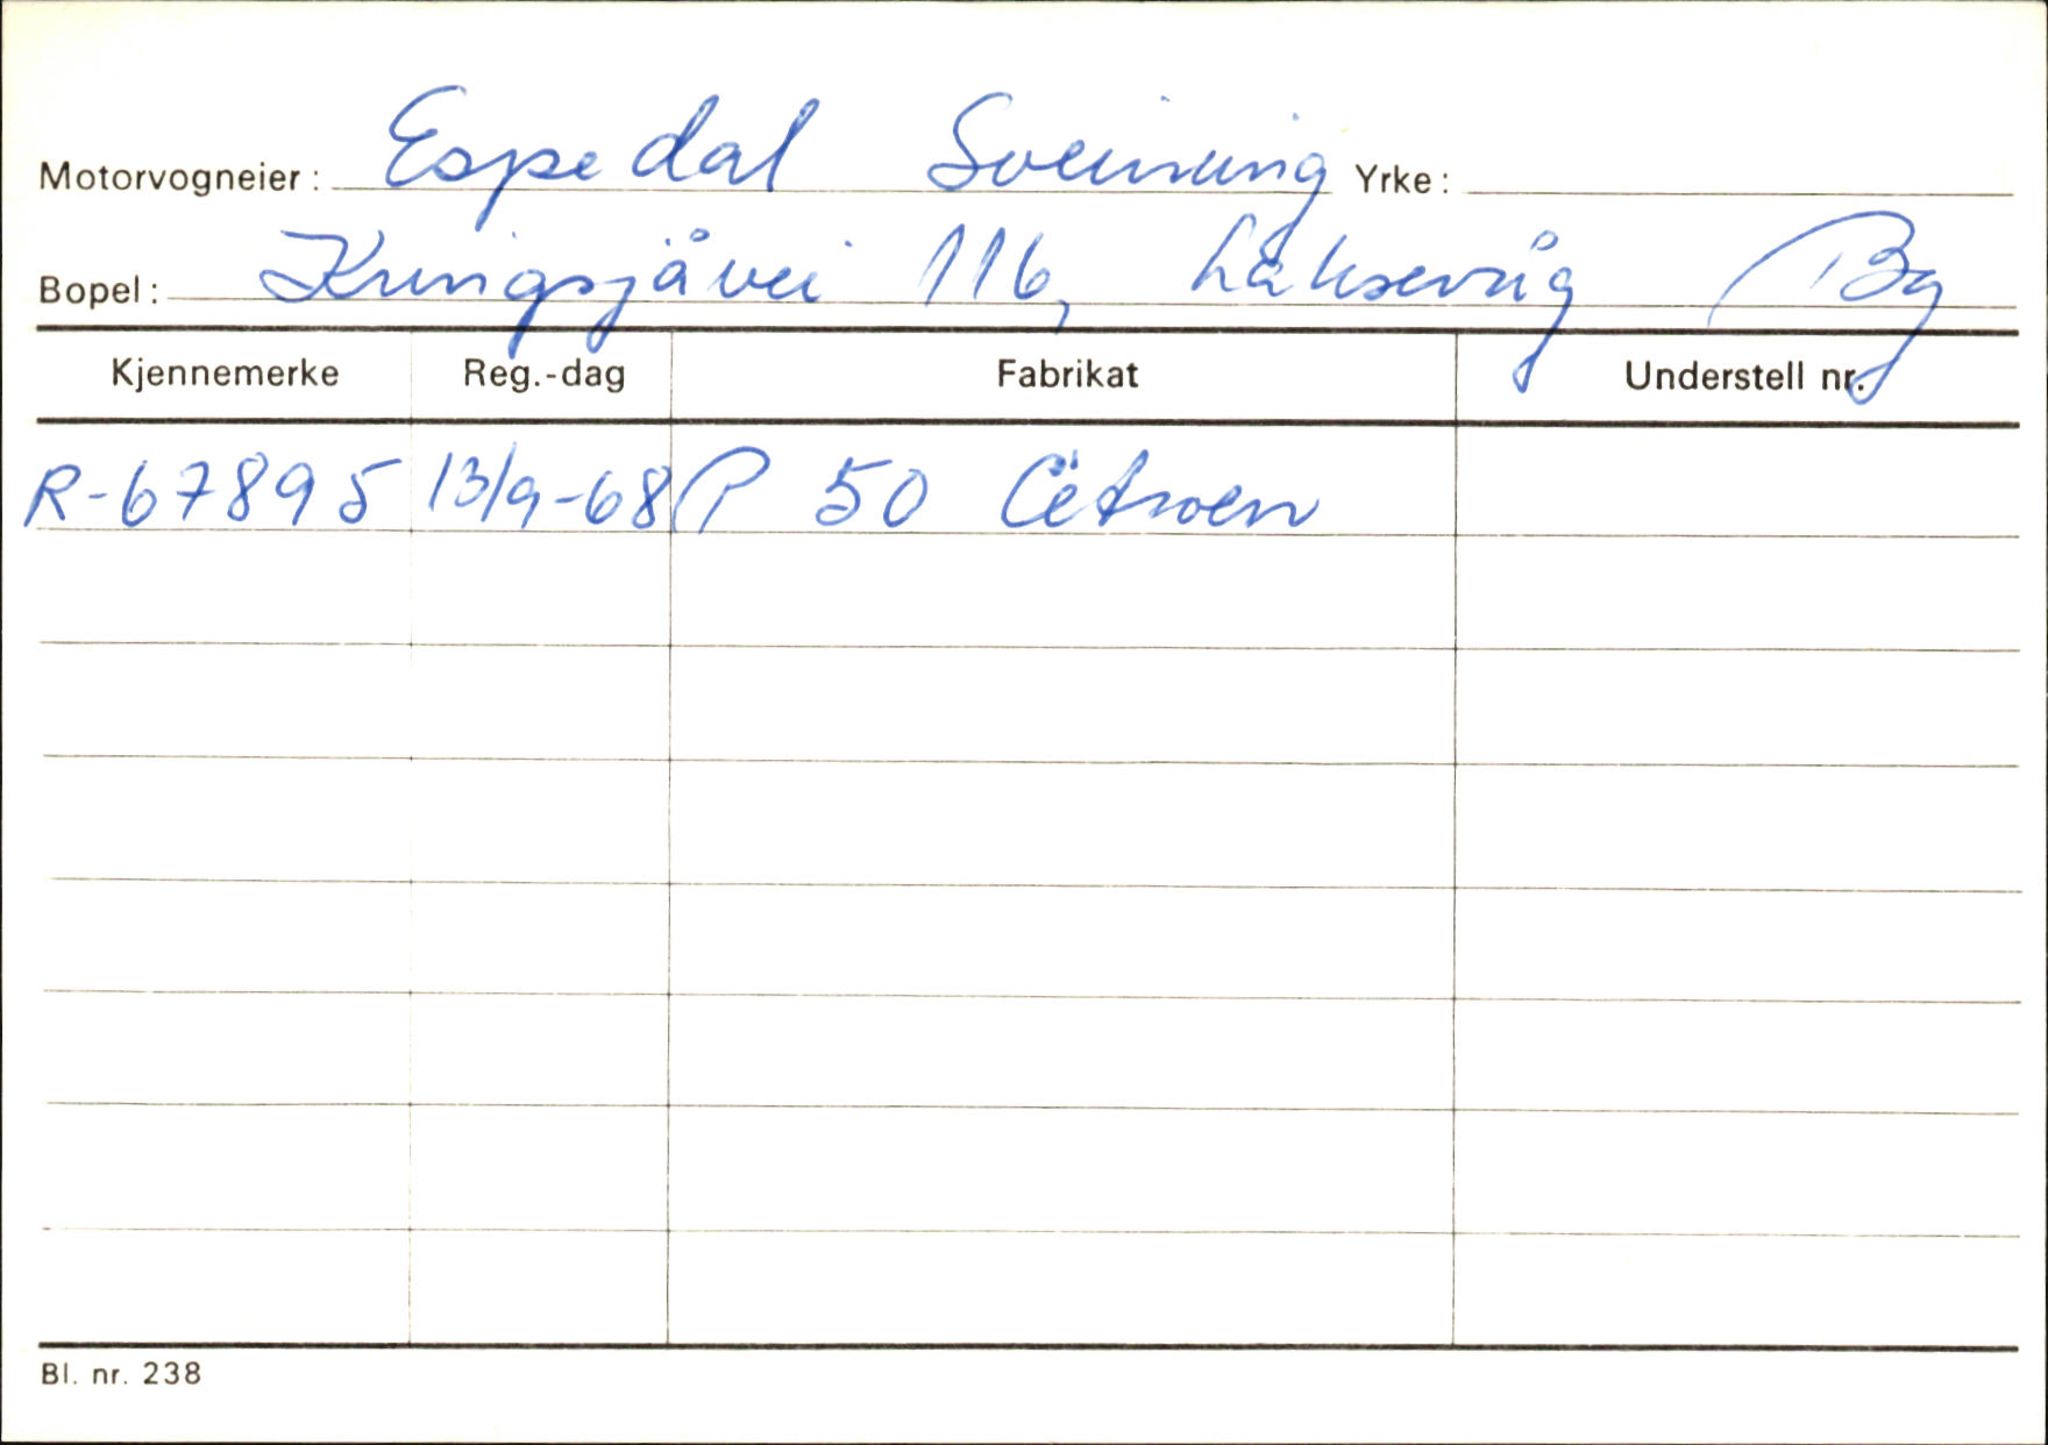 Motorvogneier: Espedal Sveinung Yrke:
Bopel: Kringsjåvei 116, Laksevåg Bg
Kjennemerke Reg.-dag Fabrikat Understell nr.
R-67895 13/9-68 P 50 Citroen
Bl. nr. 238